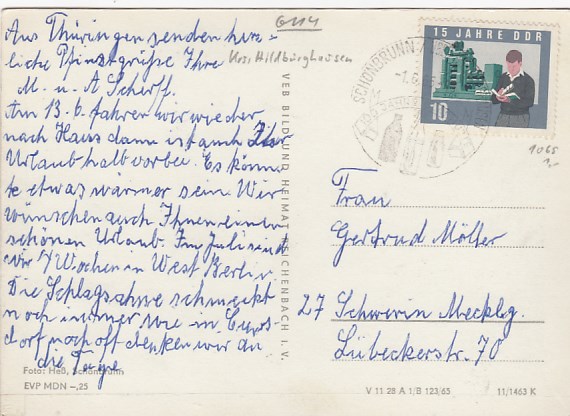 6114
Aus Thüringen senden herz-
liche Pfingstgrüße Ihre
Krs. Hildburghausen
M. u. A Scherff.
Am 13.6. fahren wir wieder
nach Haus dann ist auch der
Urlaub halb vorbei. Es könn-
te etwas wärmer sein. Wir
wünschen auch Ihnen einen
schönen Urlaub. Im Juli sind
wir 4 Wochen in West Berlin.
Die Schlagsahne schmeckt
noch immer wie in
dorf noch oft denken wir an
die Tage
Foto: Heß, Schönbrunn
EVP MDN –,25
VEB BILD UND HEIMAT REICHENBACH I. V.
SCHÖNBRUNN
15 JAHRE DDR
10
1065
Frau
Gertrud Möller
27 Schwerin Mecklbg.
Lübeckerstr. 70
V 11 28 A 1/B 123/65
11/1463 K